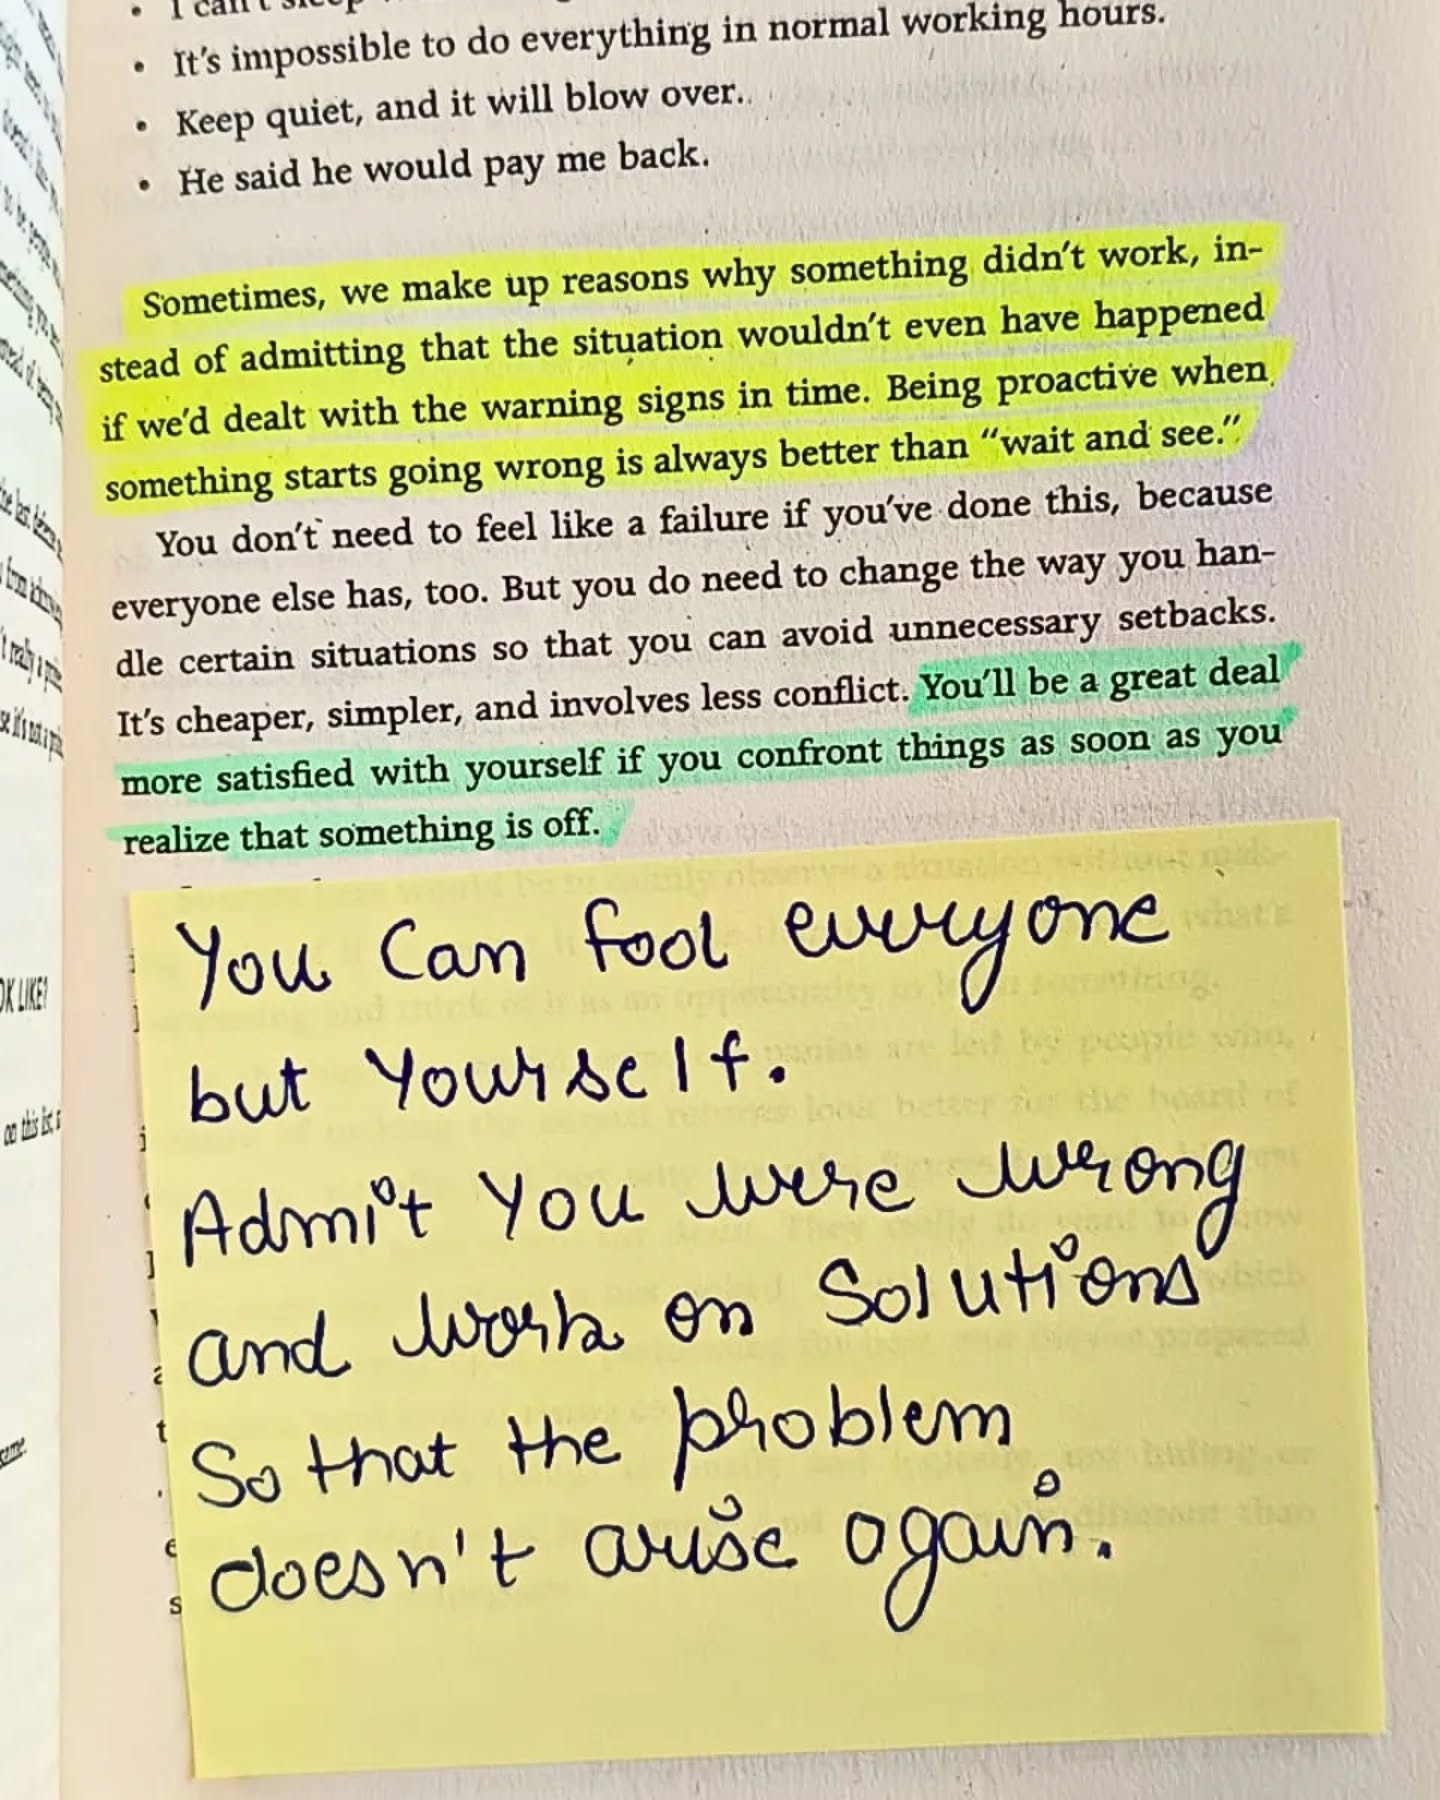 • I can't sleep
• It's impossible to do everything in normal working hours.
• Keep quiet, and it will blow over.
• He said he would pay me back.
Sometimes, we make up reasons why something didn't work, in-
stead of admitting that the situation wouldn't even have happened
if we'd dealt with the warning signs in time. Being proactive when
something starts going wrong is always better than “wait and see.”
You don't need to feel like a failure if you've done this, because
everyone else has, too. But you do need to change the way you han-
dle certain situations so that you can avoid unnecessary setbacks.
It's cheaper, simpler, and involves less conflict. You'll be a great deal
more satisfied with yourself if you confront things as soon as you
realize that something is off.
You Can fool everyone
but Yourself.
Admit You were wrong
and work on Solutions
So that the problem
doesn't arise again.
OK LIKE?
on this list,
same.